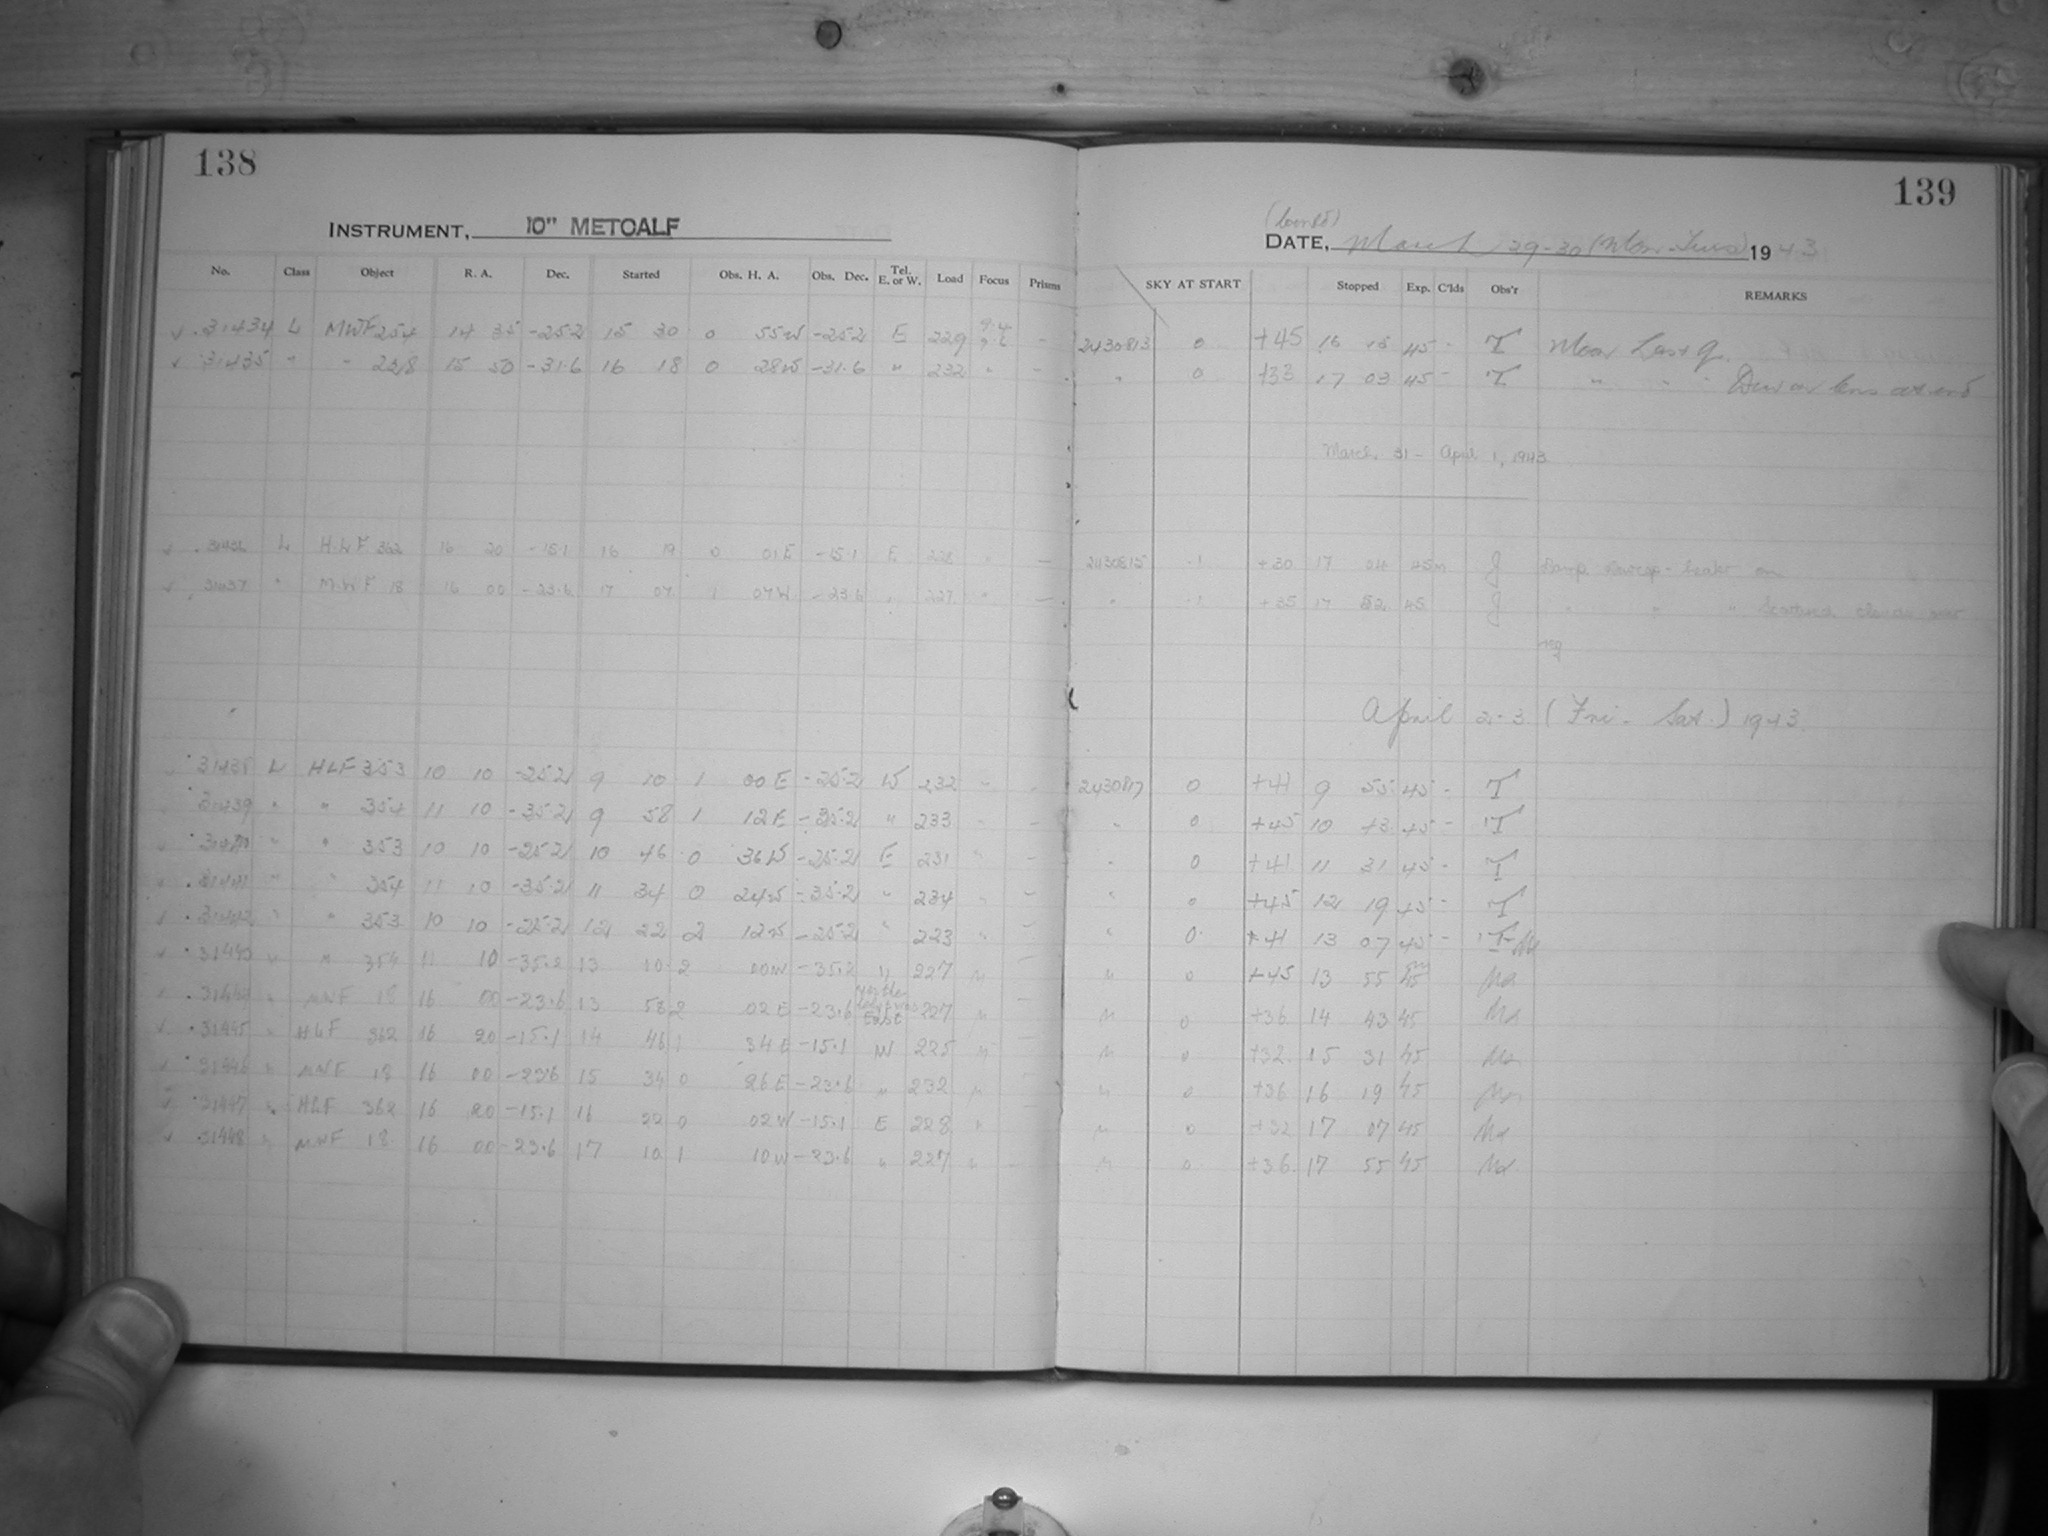 138
INSTRUMENT, 10" METCALF
No. Class Object R. A. Dec. Started Obs. H. A. Obs. Dec. Tel. E. or W. Load Focus Prisms
31434 L MWF 254 14 35 -25.2 15 30 0 55W -25.2 E 229 9.4
31435 " " 228 15 50 -31.6 16 18 0 28W -31.6 " 232 " -
31436 L HLF 362 16 20 -15.1 16 19 0 01E -15.1 E 228 " -
31437 " MWF 18 16 00 -23.6 17 07 1 07W -23.6 " 227 " -
31438 L HLF 353 10 10 -25.2 9 10 1 00E -25.2 W 232 " -
31439 " " 354 11 10 -35.2 9 58 1 12E -35.2 " 233 " -
31440 " " 353 10 10 -25.2 10 46 0 36W -25.2 E 231 " -
31441 " " 354 11 10 -35.2 11 34 0 24W -35.2 " 234 " -
31442 " " 353 10 10 -25.2 12 22 2 12W -25.2 " 223 " -
31443 " " 354 11 10 -35.2 13 10 2 00W -35.2 " 227 " -
31444 " MWF 18 16 00 -23.6 13 58 2 02E -23.6 East 227 " -
31445 " HLF 362 16 20 -15.1 14 46 1 34E -15.1 W 225 " -
31446 " MWF 18 16 00 -23.6 15 34 0 26E -23.6 " 232 " -
31447 " HLF 362 16 20 -15.1 16 22 0 02W -15.1 E 228 "
31448 " MWF 18 16 00 -23.6 17 10 1 10W -23.6 " 227 " -
139
(contd)
DATE, March 29-30 (Mon-Tues) 1943
SKY AT START Stopped Exp. C'lds Obs'r REMARKS
2430813 0 +45 16 15 45 - T Moon Last q.
" 0 +33 17 03 45 - T " " " Dew on lens at end
March 31 - April 1, 1943
2430815 -1 +30 17 04 45m J Damp Dewcap-heater on
" -1 +35 17 52 45 J " " " Scattered clouds over
reg
April 2-3 (Fri - Sat.) 1943
2430817 0 +41 9 55 45 - T
" 0 +45 10 43 45 - T
" 0 +41 11 31 45 - T
" 0 +45 12 19 45 - T
" 0 +41 13 07 45 - T-Ma
" 0 +45 13 55 45m Ma
" 0 +36 14 43 45 Ma
" 0 +32 15 31 45 Ma
" 0 +36 16 19 45 Ma
" 0 +32 17 07 45 Ma
" 0 +36 17 55 45 Ma